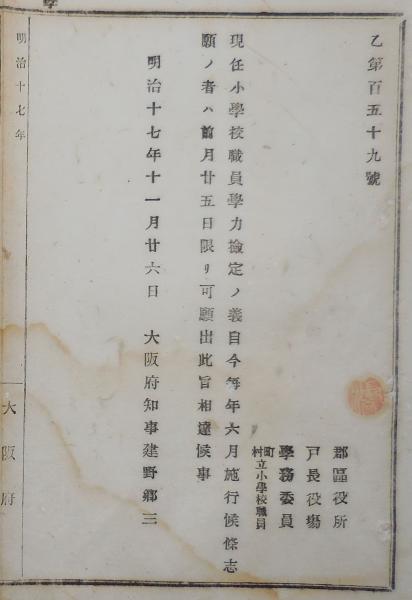 乙第百五十九號
郡區役所
戸長役塲
學務委員
町村立小學校職員
現任小學校職員學力檢定ノ義自今每年六月施行候條志
願ノ者ハ前月廿五日限リ可願出此旨相達候事
明治十七年十一月廿六日　大阪府知事建野鄕三
明治十七年
大阪府